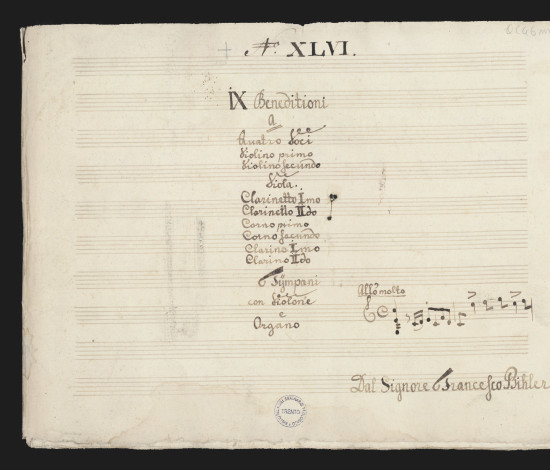 N: XLVI.
IX Beneditioni
a
Quatro Voci
Violino primo
Violino secundo
Viola.
Clarinetto Imo
Clarinetto IIdo
Corno primo
Corno secundo
Clarino Imo
Clarino IIdo
Tÿmpani
con Violone
e
Organo
Allo molto
Dal Signore Francesco Bihler
TRENTO